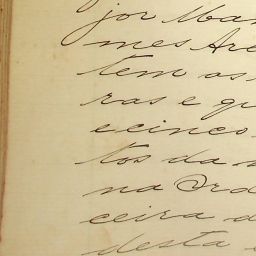 jor Man
mes Are
tem os
ras e qu
e cinco
tos da
na Ord
ceira d
desta